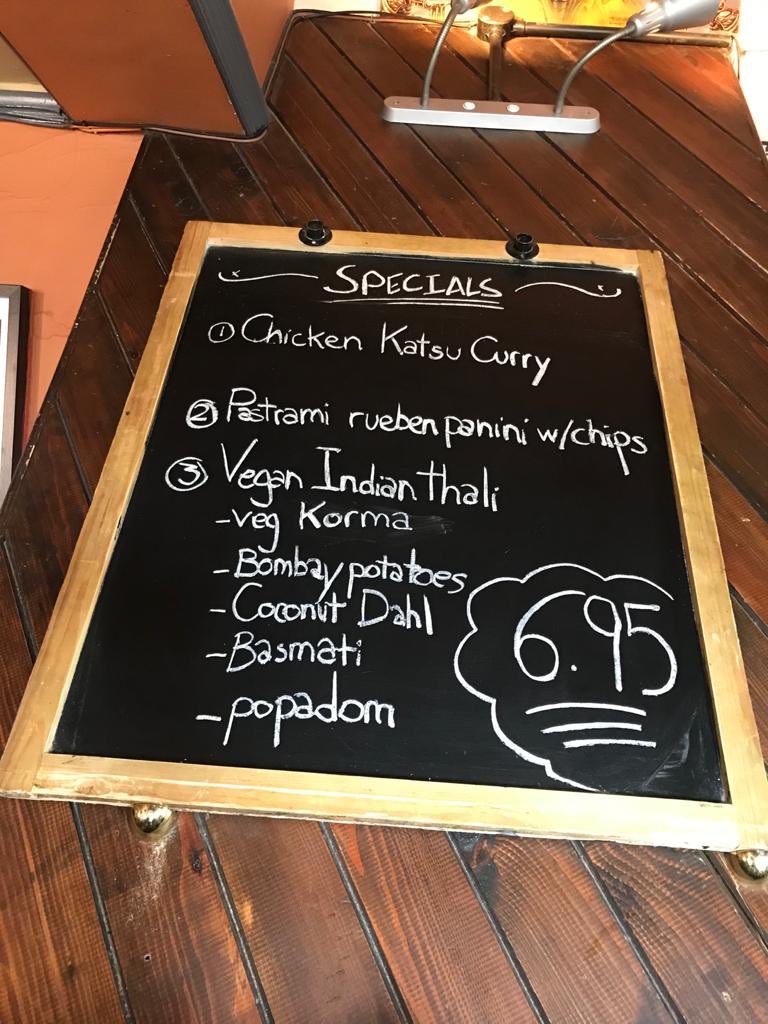 SPECIALS
① Chicken Katsu Curry
② Pastrami rueben panini w/chips
③ Vegan Indian thali
-veg Korma
-Bombay potatoes
-Coconut Dahl
-Basmati
-popadom
6.95